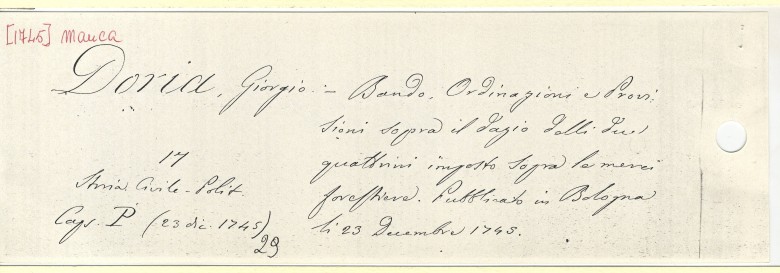 [1745] manca
Doria, Giorgio. – Bando, Ordinazioni e Provi:
sioni sopra il dazio delli due
quattrini imposto sopra le merci
forestiere. Pubblicato in Bologna
li 23 Decembre 1745.
17
Storia Civile-Polit.
Caps. P (23 dic. 1745)
29